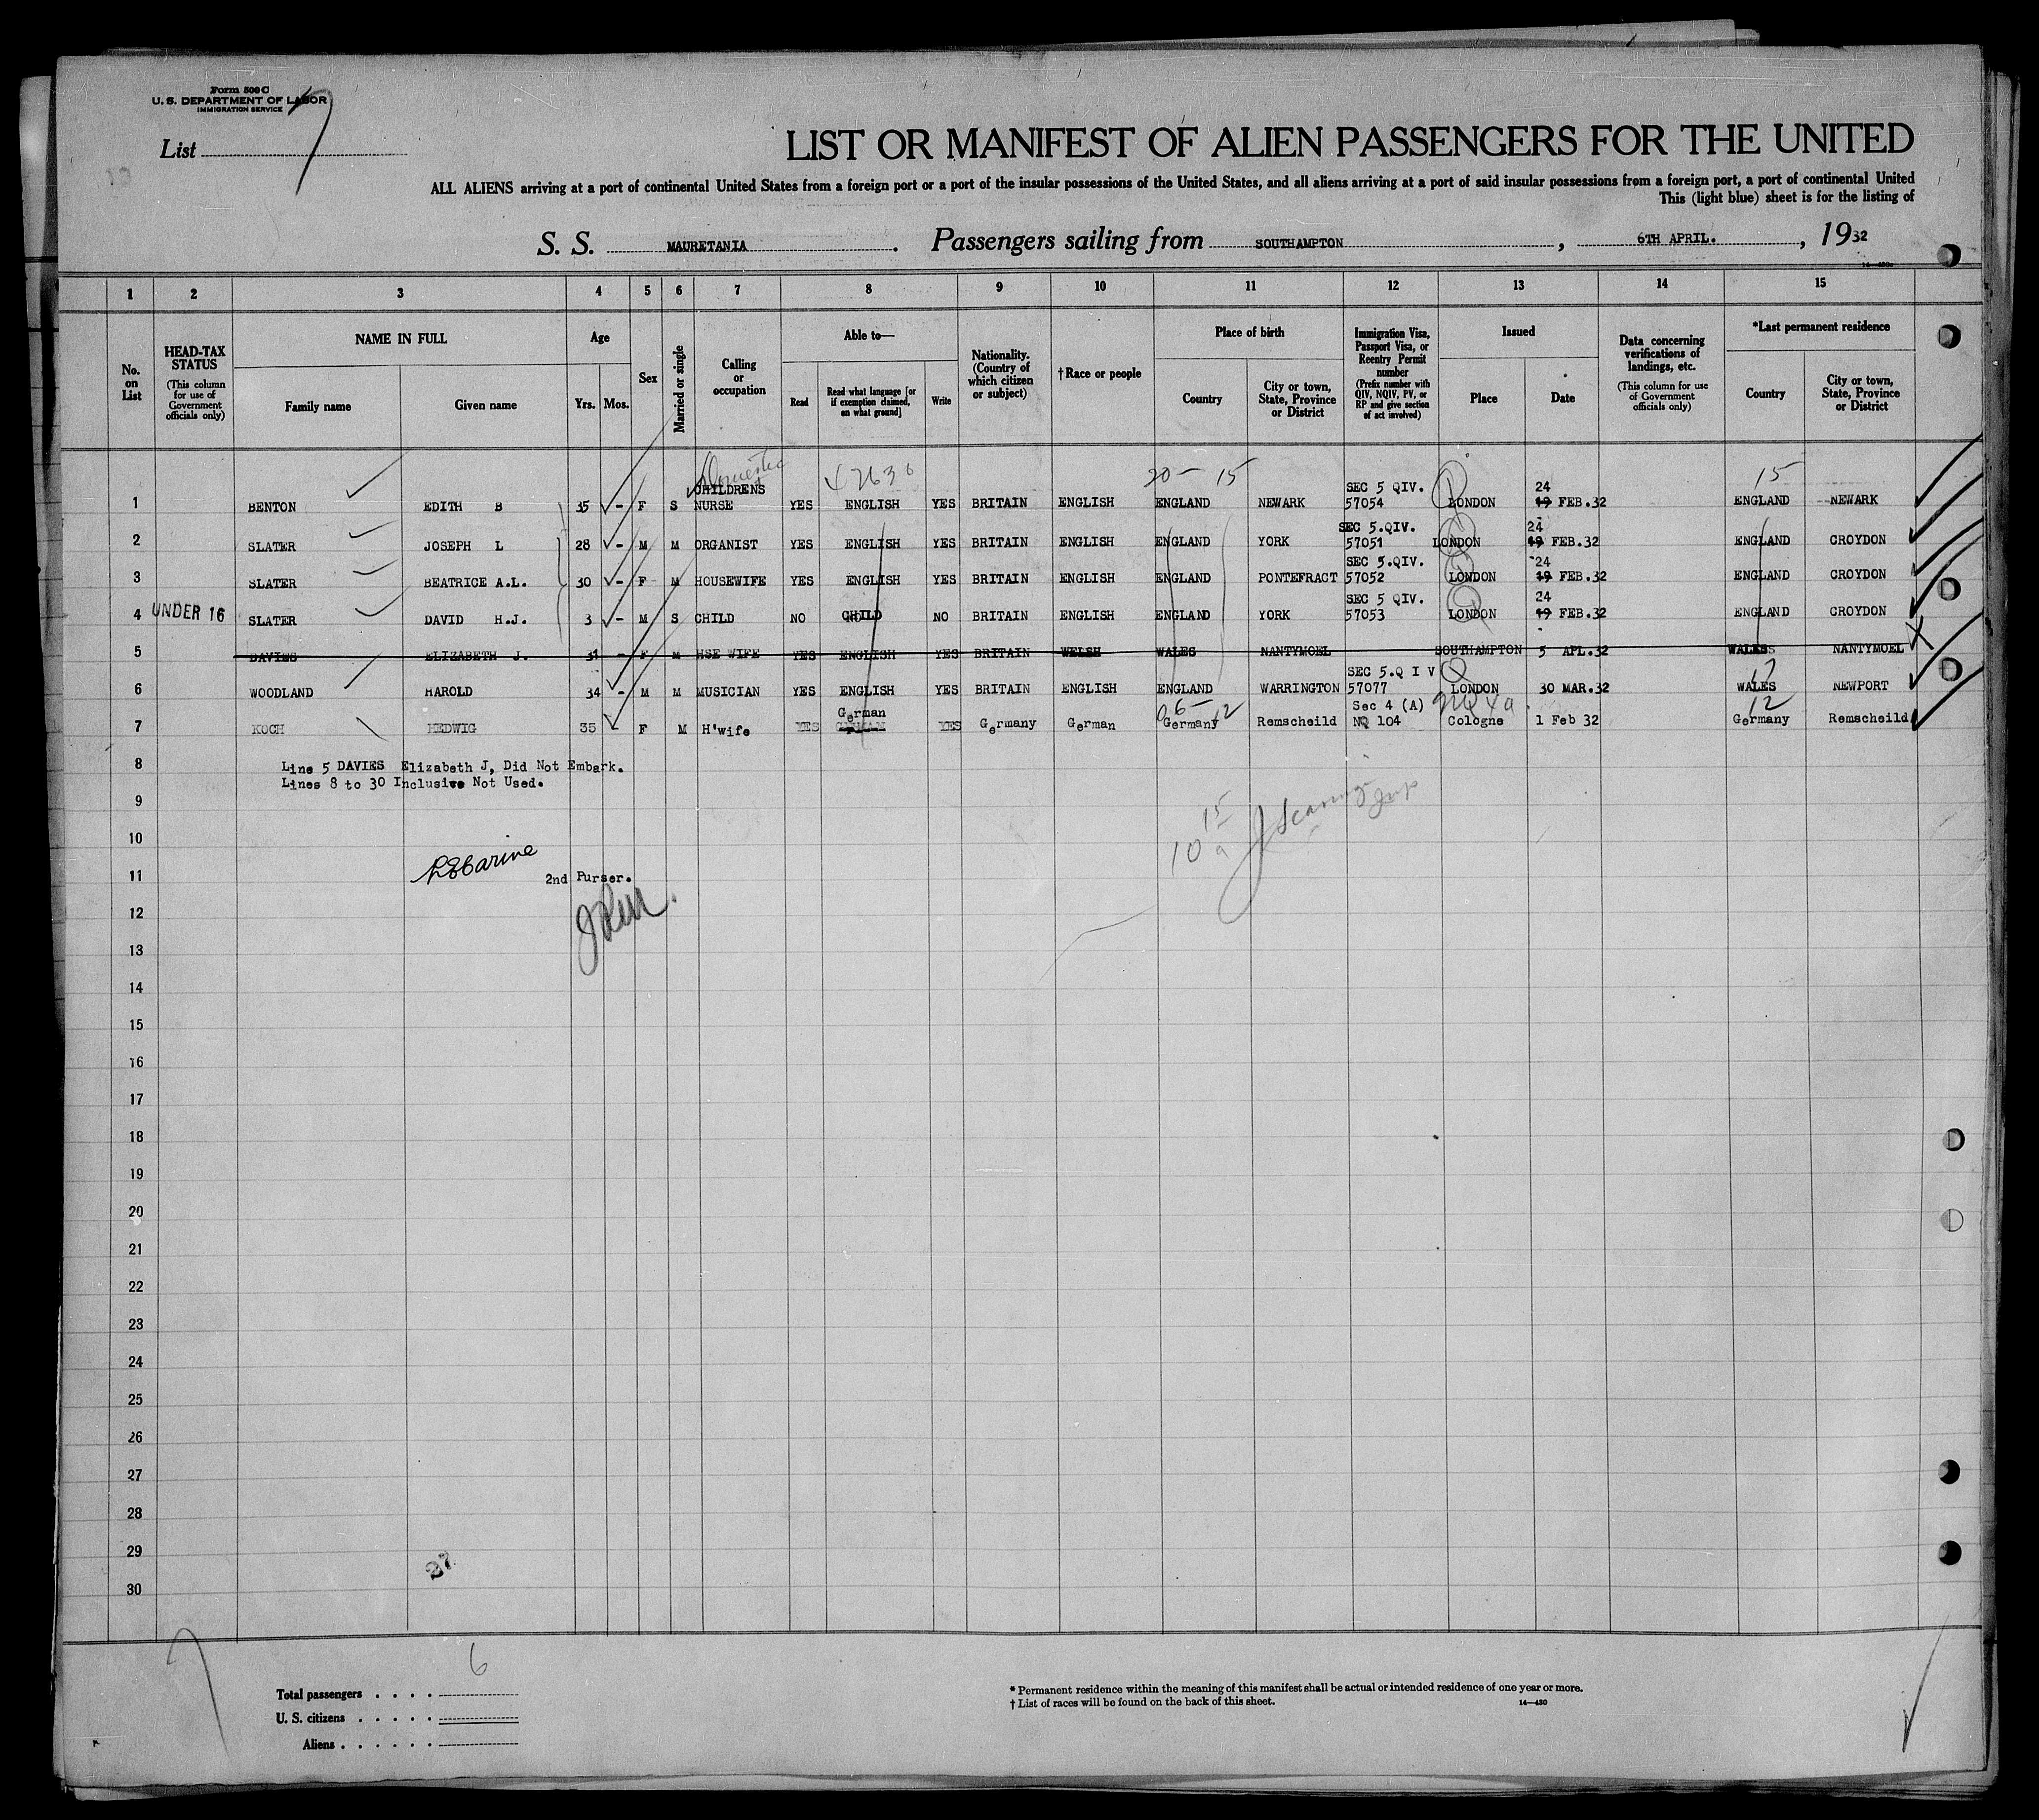 Form 500 C
U. S. DEPARTMENT OF LABOR
IMMIGRATION SERVICE
List 7
LIST OR MANIFEST OF ALIEN PASSENGERS FOR THE UNITED
ALL ALIENS arriving at a port of continental United States from a foreign port or a port of the insular possessions of the United States, and all aliens arriving at a port of said insular possessions from a foreign port, a port of continental United
This (light blue) sheet is for the listing of
S. S. MAURETANIA . Passengers sailing from SOUTHAMPTON , 6TH APRIL. , 1932
14—430
1 2 3 4 5 6 7 8 9 10 11 12 13 14 15
No. on List
HEAD-TAX STATUS (This column for use of Government officials only)
NAME IN FULL
Family name
Given name
Age
Yrs. Mos.
Sex
Married or single
Calling or occupation
Able to—
Read
Read what language [or if exemption claimed, on what ground]
Write
Nationality. (Country of which citizen or subject)
†Race or people
Place of birth
Country
City or town, State, Province or District
Immigration Visa, Passport Visa, or Reentry Permit number (Prefix number with QIV, NQIV, PV, or RP and give section of act involved)
Issued
Place
Date
Data concerning verifications of landings, etc. (This column for use of Government officials only)
*Last permanent residence
Country
City or town, State, Province or District
Domestic 20— 15 15
CHILDRENS SEC 5 QIV. 24
1 BENTON EDITH B 35 - F S NURSE YES ENGLISH YES BRITAIN ENGLISH ENGLAND NEWARK 57054 LONDON 19 FEB.32 ENGLAND NEWARK
SEC 5.QIV. 24
2 SLATER JOSEPH L 28 - M M ORGANIST YES ENGLISH YES BRITAIN ENGLISH ENGLAND YORK 57051 LONDON 19 FEB.32 ENGLAND CROYDON
SEC 5.QIV. 24
3 SLATER BEATRICE A.L. 30 - F M HOUSEWIFE YES ENGLISH YES BRITAIN ENGLISH ENGLAND PONTEFRACT 57052 LONDON 19 FEB.32 ENGLAND CROYDON
SEC 5 QIV. 24
4 UNDER 16 SLATER DAVID H.J. 3 - M S CHILD NO CHILD NO BRITAIN ENGLISH ENGLAND YORK 57053 LONDON 19 FEB.32 ENGLAND CROYDON
5 DAVIES ELIZABETH J. 31 - F M HSE WIFE YES ENGLISH YES BRITAIN WELSH WALES NANTYMOEL SOUTHAMPTON 5 APL.32 WALES NANTYMOEL
SEC 5.Q I V Q 17
6 WOODLAND HAROLD 34 - M M MUSICIAN YES ENGLISH YES BRITAIN ENGLISH ENGLAND WARRINGTON 57077 LONDON 30 MAR.32 WALES NEWPORT
German 06— 12 Sec 4 (A) NQ 4a 12
7 KOCH HEDWIG 35 F M H'wife YES GERMAN YES Germany German Germany Remscheild NQ 104 Cologne 1 Feb 32 Germany Remscheild
8 Line 5 DAVIES Elizabeth J, Did Not Embark.
Lines 8 to 30 Inclusive Not Used.
9
10
11 2nd Purser.
12
13
14
15
16
17
18
19
20
21
22
23
24
25
26
27
28
29
27
30
Total passengers . . . . 6
U. S. citizens . . . . .
Aliens . . . . . .
* Permanent residence within the meaning of this manifest shall be actual or intended residence of one year or more.
† List of races will be found on the back of this sheet. 14—430